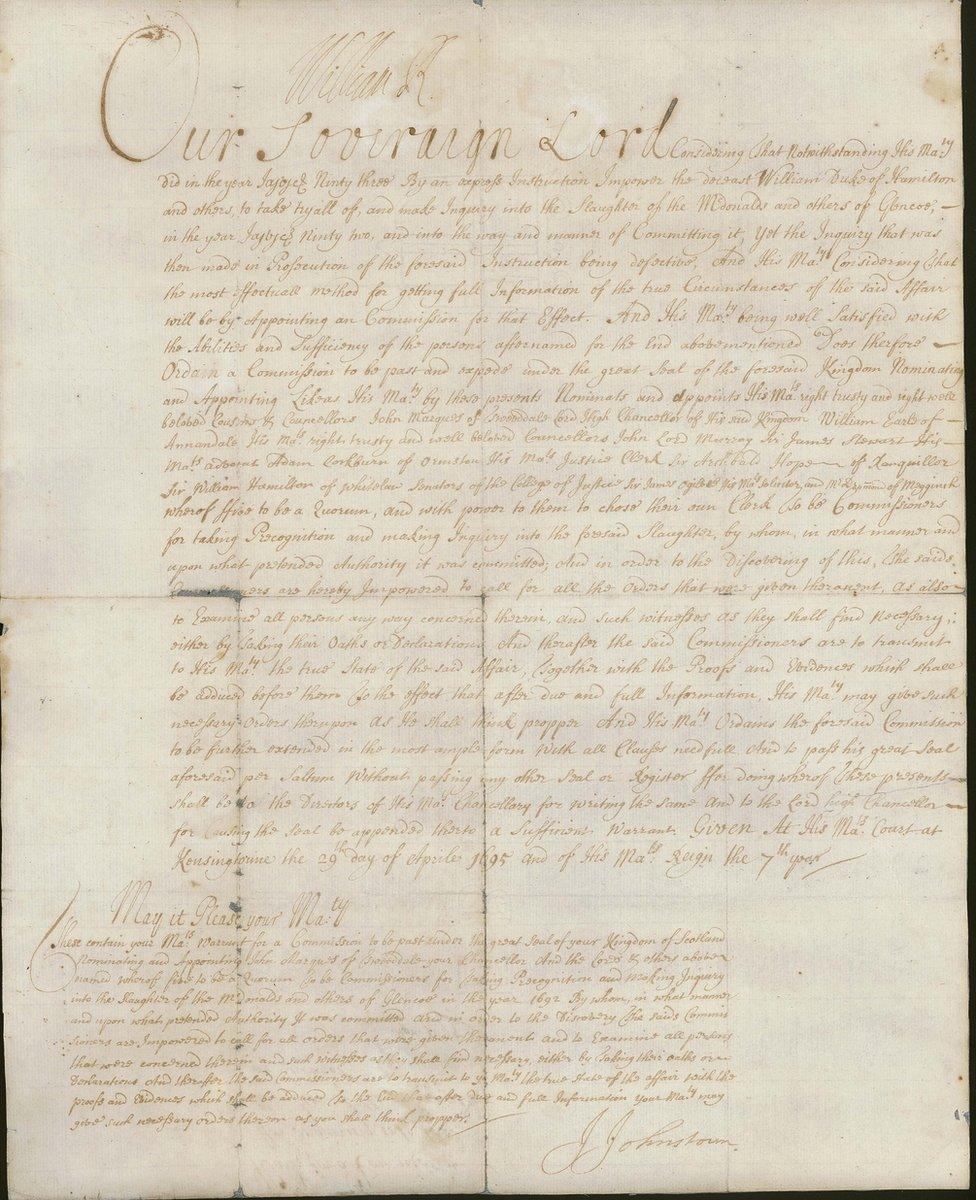 William R
Our Soveraign Lord Considering That Notwithstanding His Ma:ty
did in the year Jajvjc& Ninty three By an express Instruction Impower the deceast William Duke of Hamilton
and others, to take tryall of, and make Inquiry into the Slaughter of the McDonalds and others of Glencoe,
in the year Jajvjc& Ninty two, and into the way and manner of Committing it, Yet the Inquiry that was
then made in Prosecution of the foresaid Instruction being defective, And His Ma:ty Considering That
the most Effectuall method for getting full Information of the true Circumstances of the said Affair
will be by Appointing an Commission for that Effect. And His Ma:ty being well Satisfied with
the Abilities and Sufficiency of the persons afternamed for the End abovementioned Does therfore
Ordain a Commission to be past and exped under the great Seal of the foresaid Kingdom Nominating
and Appointing Likeas His Ma:ty by these presents Nominats and Appoints His Ma:ts right trusty and right well
beloved Cousins & Councellors John Marques of Tweeddale Lord High Chancellor of His said Kingdom William Earle of
Annandale His Ma:ts right trusty and well beloved Councellors John Lord Murray Sir James Stewart His
Ma:ts advocat Adam Cockburn of Ormistou His Ma:ts Justice Clerk Sir Archbald Hope of Ranquiller
Sir William Hamilton of Whitelaw Senators of the College of Justice Sir James Ogilvie His Ma:ts Solicitor, and Mr Drummond of Megginsh
wherof ffive to be a Quorum, and with power to them to chose their oun Clerk To be Commissioners
for taking Precognition and making Inquiry into the foresaid Slaughter, by whom, in what manner and
upon what pretended Authority it was committed, And in order to the Discovering of this, The saids
Commissioners are hereby Impowered to call for all the Orders that were given theranent, As also
to Examine all persons any way concerned therein, and Such witnesses as they shall find Necessary,
either by Taking their Oaths or Declarations. And therafter the said Commissioners are to transmit
to His Ma:ty the true State of the said Affair, Together with the Proofs and Evidences which shall
be adduced before them To the effect that after due and full Information, His Ma:ty may give such
necessary Orders therupon as He shall think propper And His Ma:ty Ordains the foresaid Commission
to be further extended in the most ample form with all Clauses needfull And to pass his great Seal
aforesaid per Saltum Without passing any other Seal or Register ffor doing wherof These presents
shall be to the Directors of His Ma:ts Chancellary for writing the same And to the Lord high Chancellor
for Causing the Seal be appended therto a Sufficient Warrant. Given At His Ma:ts Court at
Kensingtoune the 29th day of Aprile 1695 and of His Ma:ts Reign the 7th year
May it Please your Ma:ty
These contain your Ma:ts Warrant for a Commission to be past under the great Seal of your Kingdom of Scotland
Nominating and Appointing John Marques of Tweeddale your Chancellor And the Lords & others above
named wherof five to be a Quorum To be Commissioners for Taking Precognition and Making Inquiry
into the Slaughter of the McDonalds and others of Glencoe in the year 1692 By whom, in what manner
and upon what pretended Authority It was committed And in order to the Discovery The saids Commis
sioners are Impowered to call for all orders that were given theranent and to Examine all persons
that were concerned therein and such witnesses as they shall find necessary, either by Taking their oaths or
Declarations And therafter the said Commissioners are to transmit to yr Ma:ty the true State of the affair with the
proofs and Evidences which shall be adduced To the End that after due and full Information Your Ma:ty may
give such necessary orders thereon as you shall think propper.
J Johnstoun